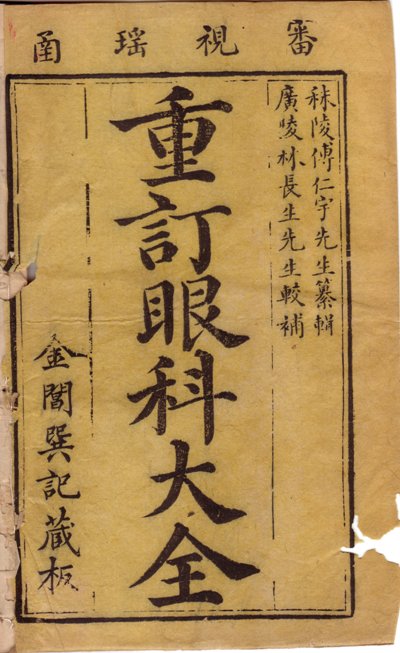 審視瑶函
秣陵傅仁宇先生纂輯
廣陵林長生先生較補
重訂眼科大全
金閶巽記藏板